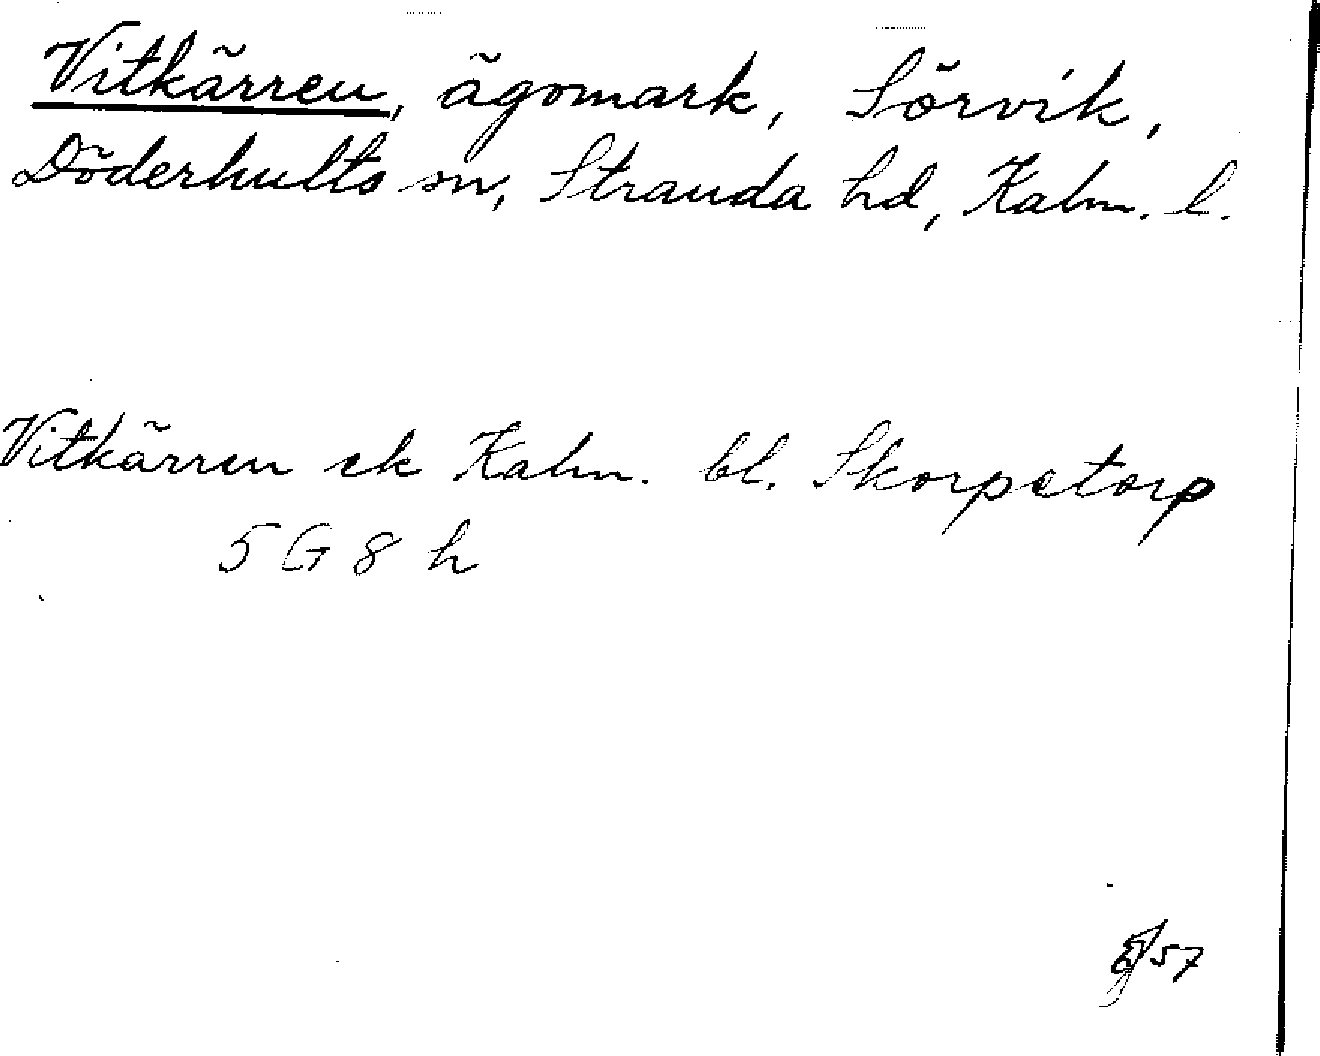 Vitkärren, ägomark, Sörvik,
Döderhults sn, Stranda hd, Kalm. l.
Vitkärren ek Kalm. bl. Skorpetorp
5 G 8 h
57